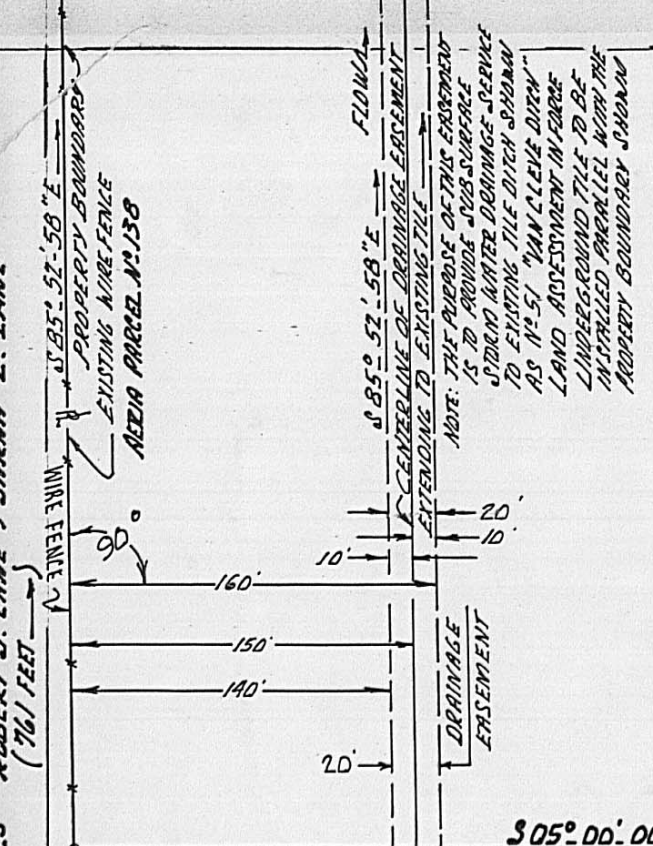 S 85° 52' 58" E
PROPERTY BOUNDARY
EXISTING WIRE FENCE
PARCEL Nº 138
WIRE FENCE
(761 FEET)
90°
FLOW
S 85° 52' 58" E
CENTERLINE OF DRAINAGE EASEMENT
EXTENDING TO EXISTING TILE
NOTE: THE PURPOSE OF THIS EASEMENT
IS TO PROVIDE SUBSURFACE
STORM WATER DRAINAGE SERVICE
TO EXISTING TILE DITCH SHOWN
AS Nº 51 "VAN CLEVE DITCH"
LAND ASSESSMENT IN FORCE
UNDERGROUND TILE TO BE
INSTALLED PARALLEL WITH THE
PROPERTY BOUNDARY SHOWN
20'
10'
10'
160'
150'
140'
20'
DRAINAGE
EASEMENT
S 05° 00' 00